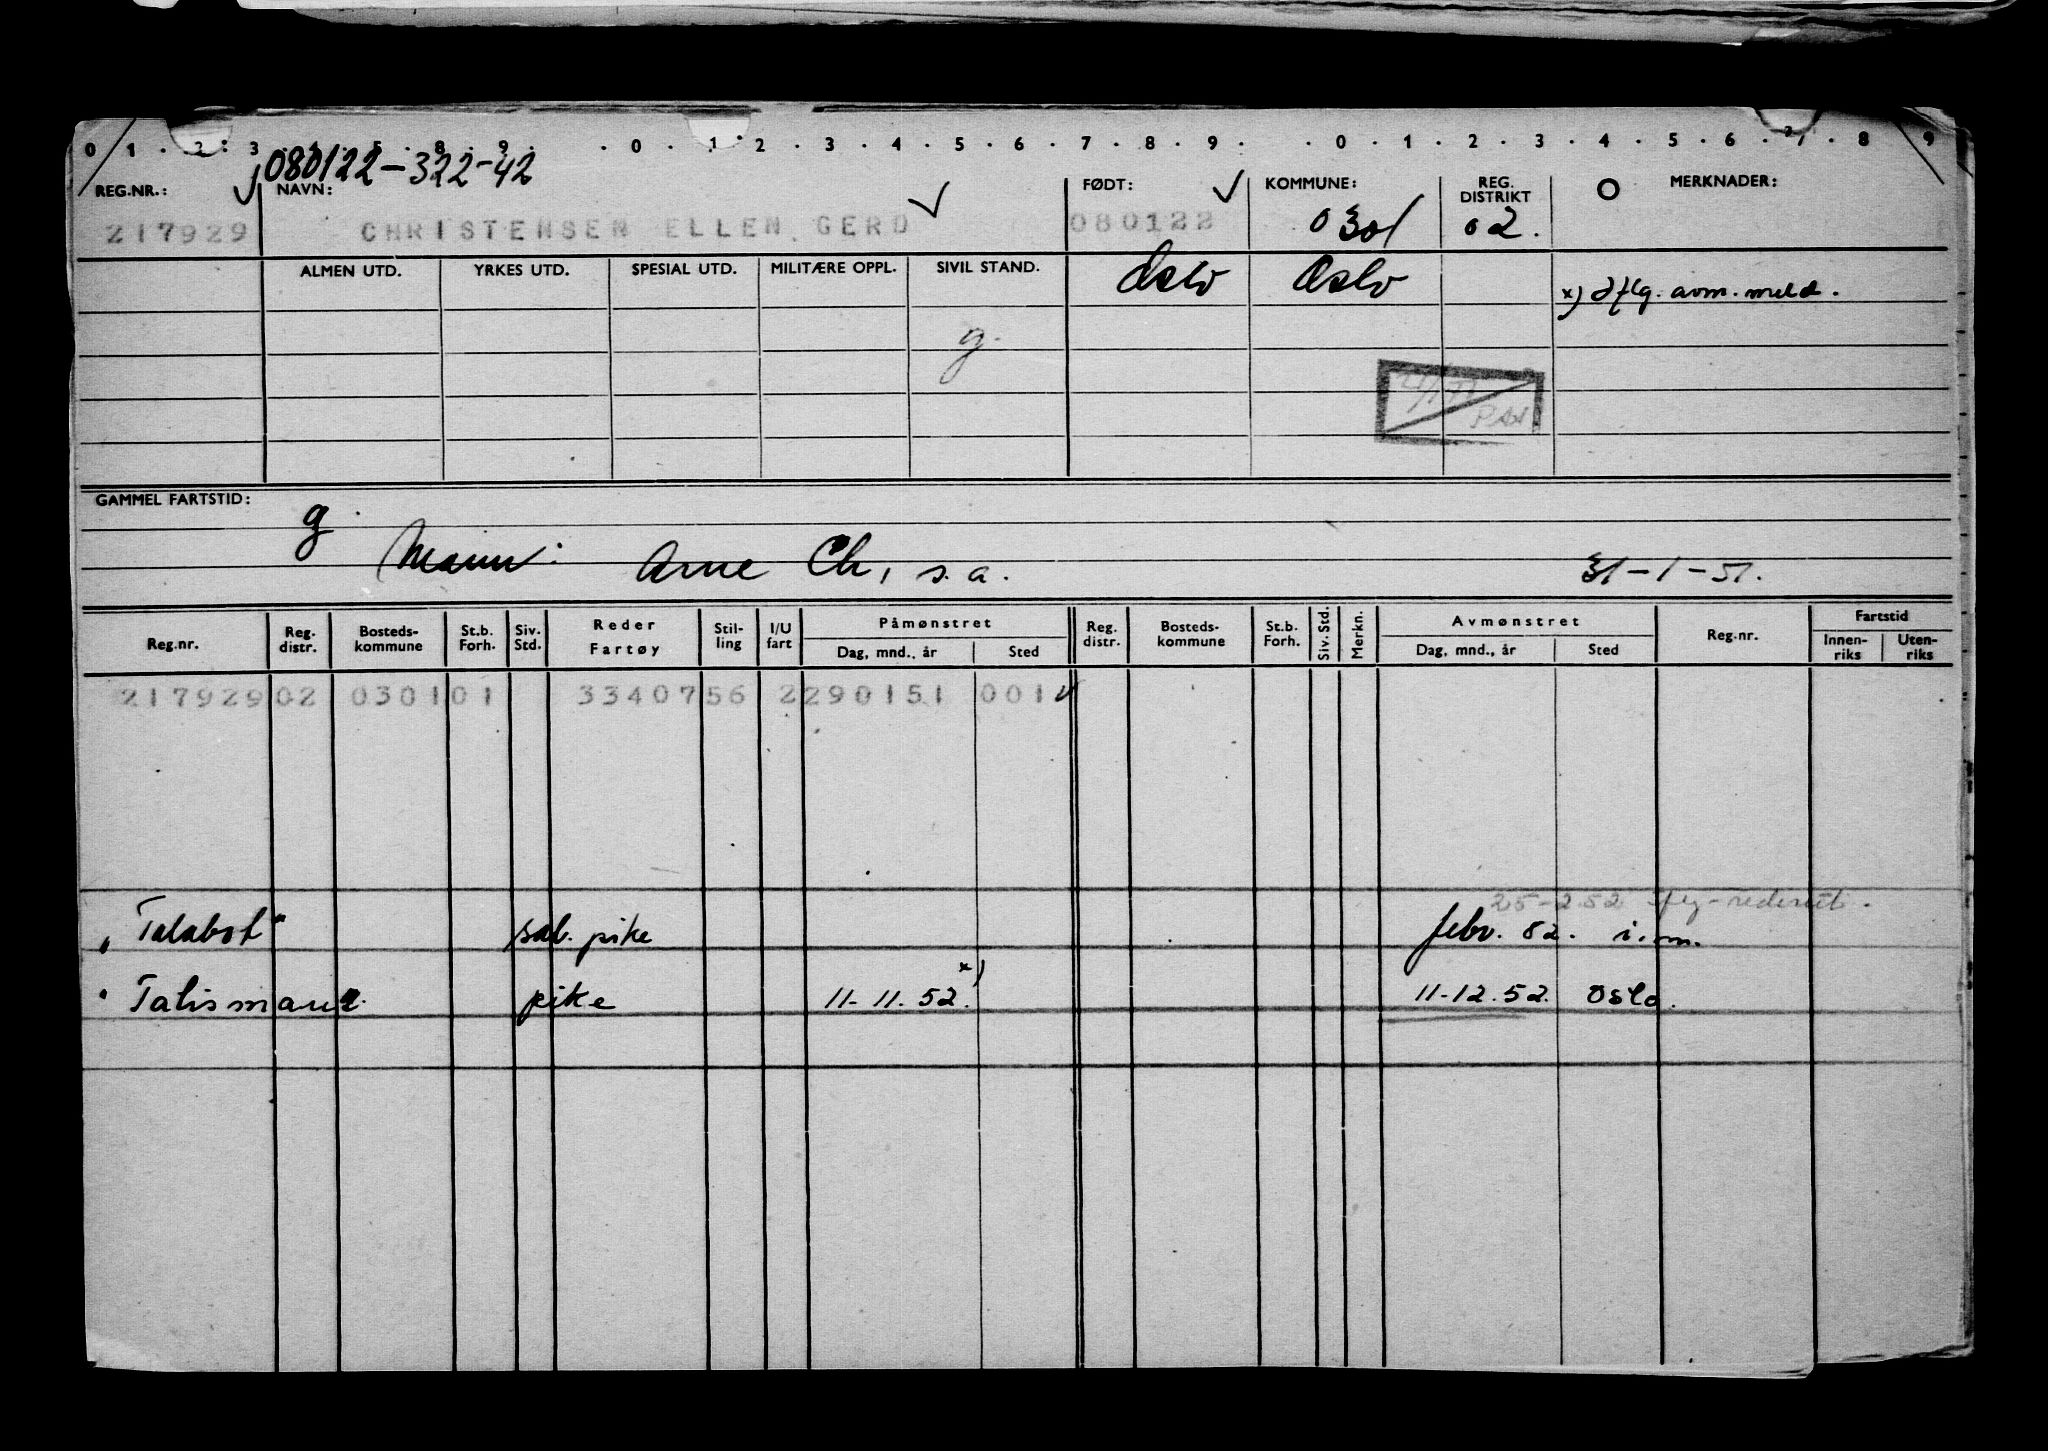 0 1 . 2 . 3 . 5 . 8 . 9 . . 0 . 1 . 2 . 3 . 4 . 5 . 6 . 7 . 8 . 9 . . 0 . 1 . 2 . 3 . 4 . 5 . 6 . 7 . 8 . 9
080122-322-42
REG.NR.: NAVN: FØDT: KOMMUNE: REG. DISTRIKT MERKNADER:
217929 CHRISTENSEN ELLEN GERD 080122 0301 02.
ALMEN UTD. YRKES UTD. SPESIAL UTD. MILITÆRE OPPL. SIVIL STAND. Oslo Oslo
x) iflg. avm. meld.
g.
GAMMEL FARTSTID:
g.
Mann: Arne Ch, s.a. 31-1-51.
Reg.nr. Reg. distr. Bosteds-kommune St.b. Forh. Siv. Std. Reder Fartøy Stil-ling I/U fart Påmønstret Dag, mnd., år Sted Reg. distr. Bosteds-kommune St.b. Forh. Siv. Std. Merkn. Avmønstret Dag, mnd., år Sted Reg.nr. Fartstid Innen-riks Uten-riks
217929 02 0301 01 33407 56 2 290151 001
25-2-52 iflg. rederiet.
"Talabot" sal. pike febr. 52. i.m.
"Talisman". pike 11-11.52. x) 11-12.52. Oslo.